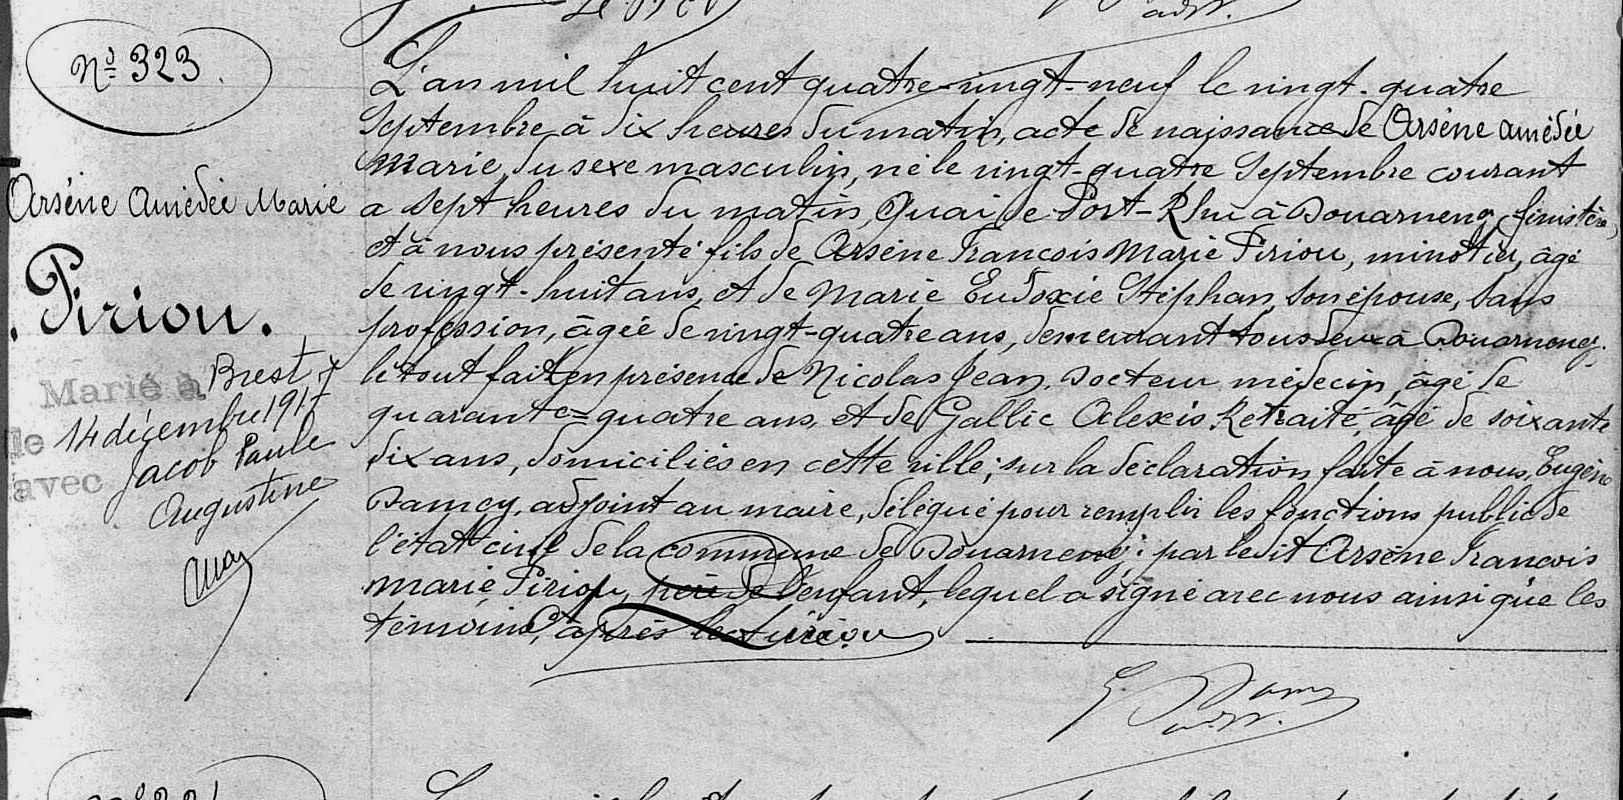 Nº 323.
Arsène Amédée Marie
Piriou.
Marié à Brest
le 14 décembre 1917
avec Jacob Paule
Augustine
L'an mil huit cent quatre-vingt-neuf le vingt-quatre
Septembre à dix heures du matin, acte de naissance de Arsène Amédée
Marie, du sexe masculin, né le vingt-quatre Septembre courant
a sept heures du matin, Quai de Port-Rhu à Douarnenez, finistère,
et à nous présenté fils de Arsène François Marie Piriou, minotier, âgé
de vingt-huit ans, et de Marie Eudoxie Stéphan, son épouse, sans
profession, âgée de vingt-quatre ans, demeurant tous deux à Douarnenez.
le tout fait en présence de Nicolas Jean, docteur médecin, âgé de
quarante-quatre ans, et de Gallic Alexis, Retraité, âgé de soixante
dix ans, domiciliés en cette ville; sur la déclaration faite à nous, Eugène
Damey, adjoint au maire, délégué pour remplir les fonctions public de
l'état civil de la commune de Douarnenez; par ledit Arsène François
Marie Piriou, père de l'enfant, lequel a signé avec nous ainsi que les
témoins, après lecture
Piriou
E. Damey
adjt.